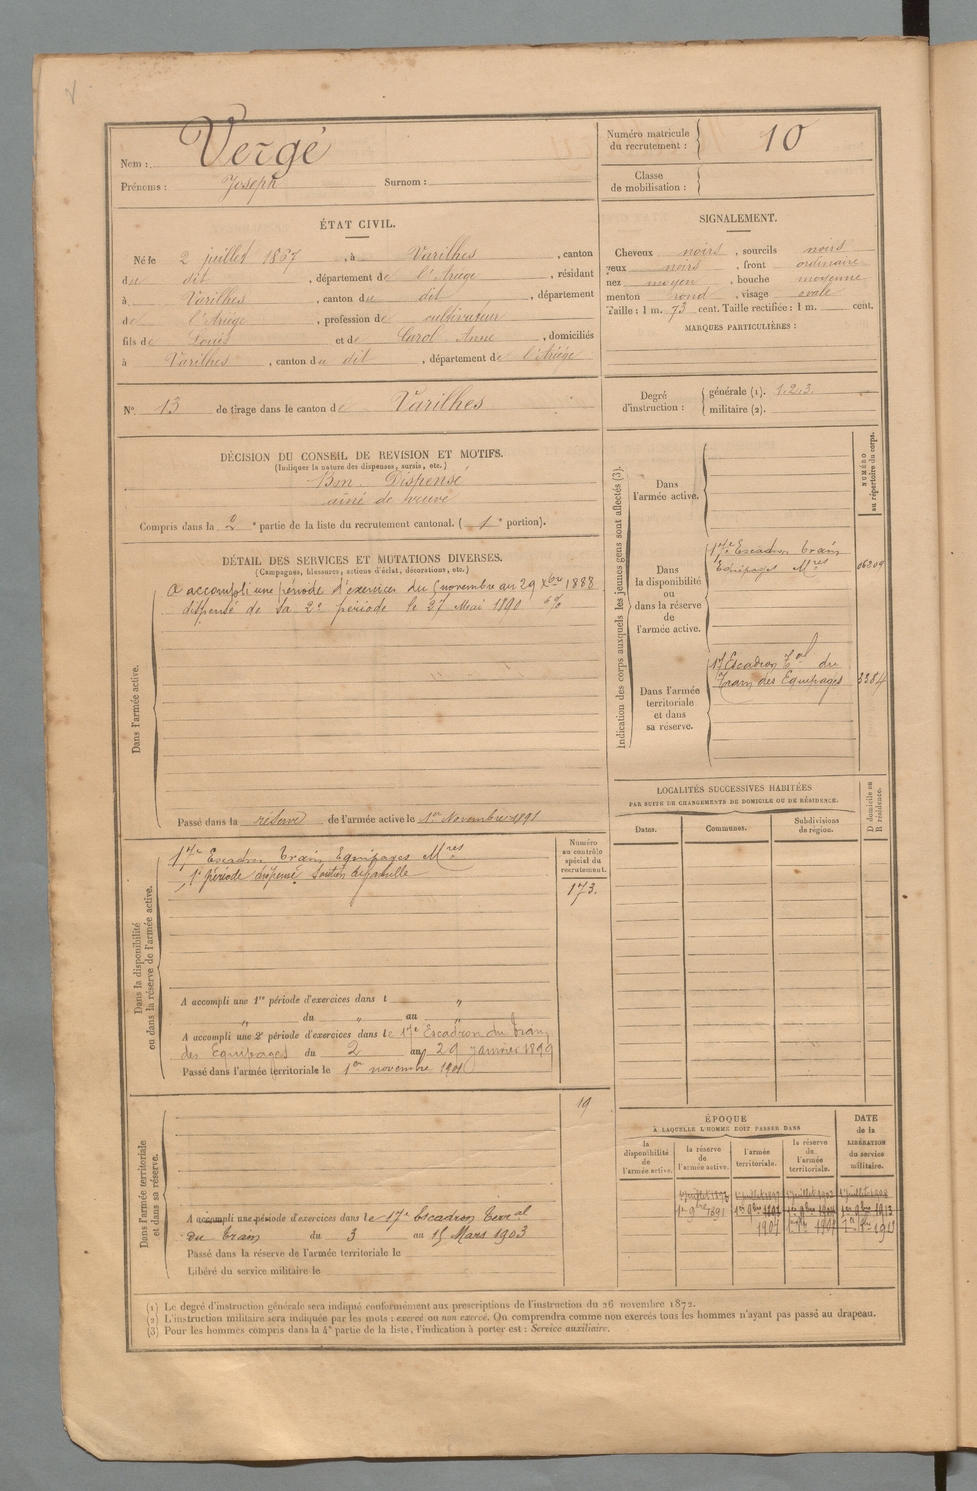 Nom : Vergé
Prénoms : Joseph Surnom :
Numéro matricule du recrutement : 10
Classe de mobilisation :
ÉTAT CIVIL.
Né le 2 juillet 1867, à Varilhes, canton
du dit, département de l'Ariège, résidant
à Varilhes, canton du dit, département
de l'Ariège, profession de cultivateur
fils de Louis et de Carol Anne, domiciliés
à Varilhes, canton du dit, département de l'Ariège
SIGNALEMENT.
Cheveux noirs, sourcils noirs
yeux noirs, front ordinaire
nez moyen, bouche moyenne
menton rond, visage ovale
Taille : 1 m. 73 cent. Taille rectifiée : 1 m. cent.
MARQUES PARTICULIÈRES :
N° 13 de tirage dans le canton de Varilhes
Degré d'instruction : générale (1). 1.2.3.
militaire (2).
DÉCISION DU CONSEIL DE REVISION ET MOTIFS.
(Indiquer la nature des dispenses, sursis, etc.)
Bon. Dispensé
aîné de veuve
Compris dans la 2e partie de la liste du recrutement cantonal. (1e portion).
DÉTAIL DES SERVICES ET MUTATIONS DIVERSES.
(Campagnes, blessures, actions d'éclat, décorations, etc.)
Dans l'armée active.
A accompli une période d'exercices du 5 novembre au 29 Xbre 1888
dispensé de sa 2e période le 27 Mai 1890
Passé dans la réserve de l'armée active le 1er Novembre 1891
Indication des corps auxquels les jeunes gens sont affectés (3).
NUMÉRO au répertoire du corps.
Dans l'armée active.
Dans la disponibilité ou dans la réserve de l'armée active.
17e Escadron train
Equipages Mres
06309
Dans l'armée territoriale et dans sa réserve.
17 Escadron Tal du
Train des Equipages
3384
LOCALITÉS SUCCESSIVES HABITÉES
PAR SUITE DE CHANGEMENTS DE DOMICILE OU DE RÉSIDENCE.
Dates. Communes. Subdivisions de région. D domicile ou R résidence.
Dans la disponibilité ou dans la réserve de l'armée active.
17e Escadron train Equipages Mres
1e période dispensé Soutien de famille
Numéro au contrôle spécial du recrutement.
173.
A accompli une 1re période d'exercices dans l "
" du " au "
A accompli une 2e période d'exercices dans le 17e Escadron du train
des Equipages du 2 au 29 janvier 1899
Passé dans l'armée territoriale le 1er novembre 1901
Dans l'armée territoriale et dans sa réserve.
19
A accompli une période d'exercices dans le 17e Escadron Terral
du train du 3 au 15 Mars 1903
Passé dans la réserve de l'armée territoriale le
Libéré du service militaire le
ÉPOQUE
À LAQUELLE L'HOMME DOIT PASSER DANS
la disponibilité de l'armée active.
la réserve de l'armée active.
l'armée territoriale.
la réserve de l'armée territoriale.
DATE de la LIBÉRATION du service militaire.
1er 9bre 1891
1901
(1) Le degré d'instruction générale sera indiqué conformément aux prescriptions de l'instruction du 26 novembre 1872.
(2) L'instruction militaire sera indiquée par les mots : exercé ou non exercé. On comprendra comme non exercés tous les hommes n'ayant pas passé au drapeau.
(3) Pour les hommes compris dans la 4e partie de la liste, l'indication à porter est : Service auxiliaire.